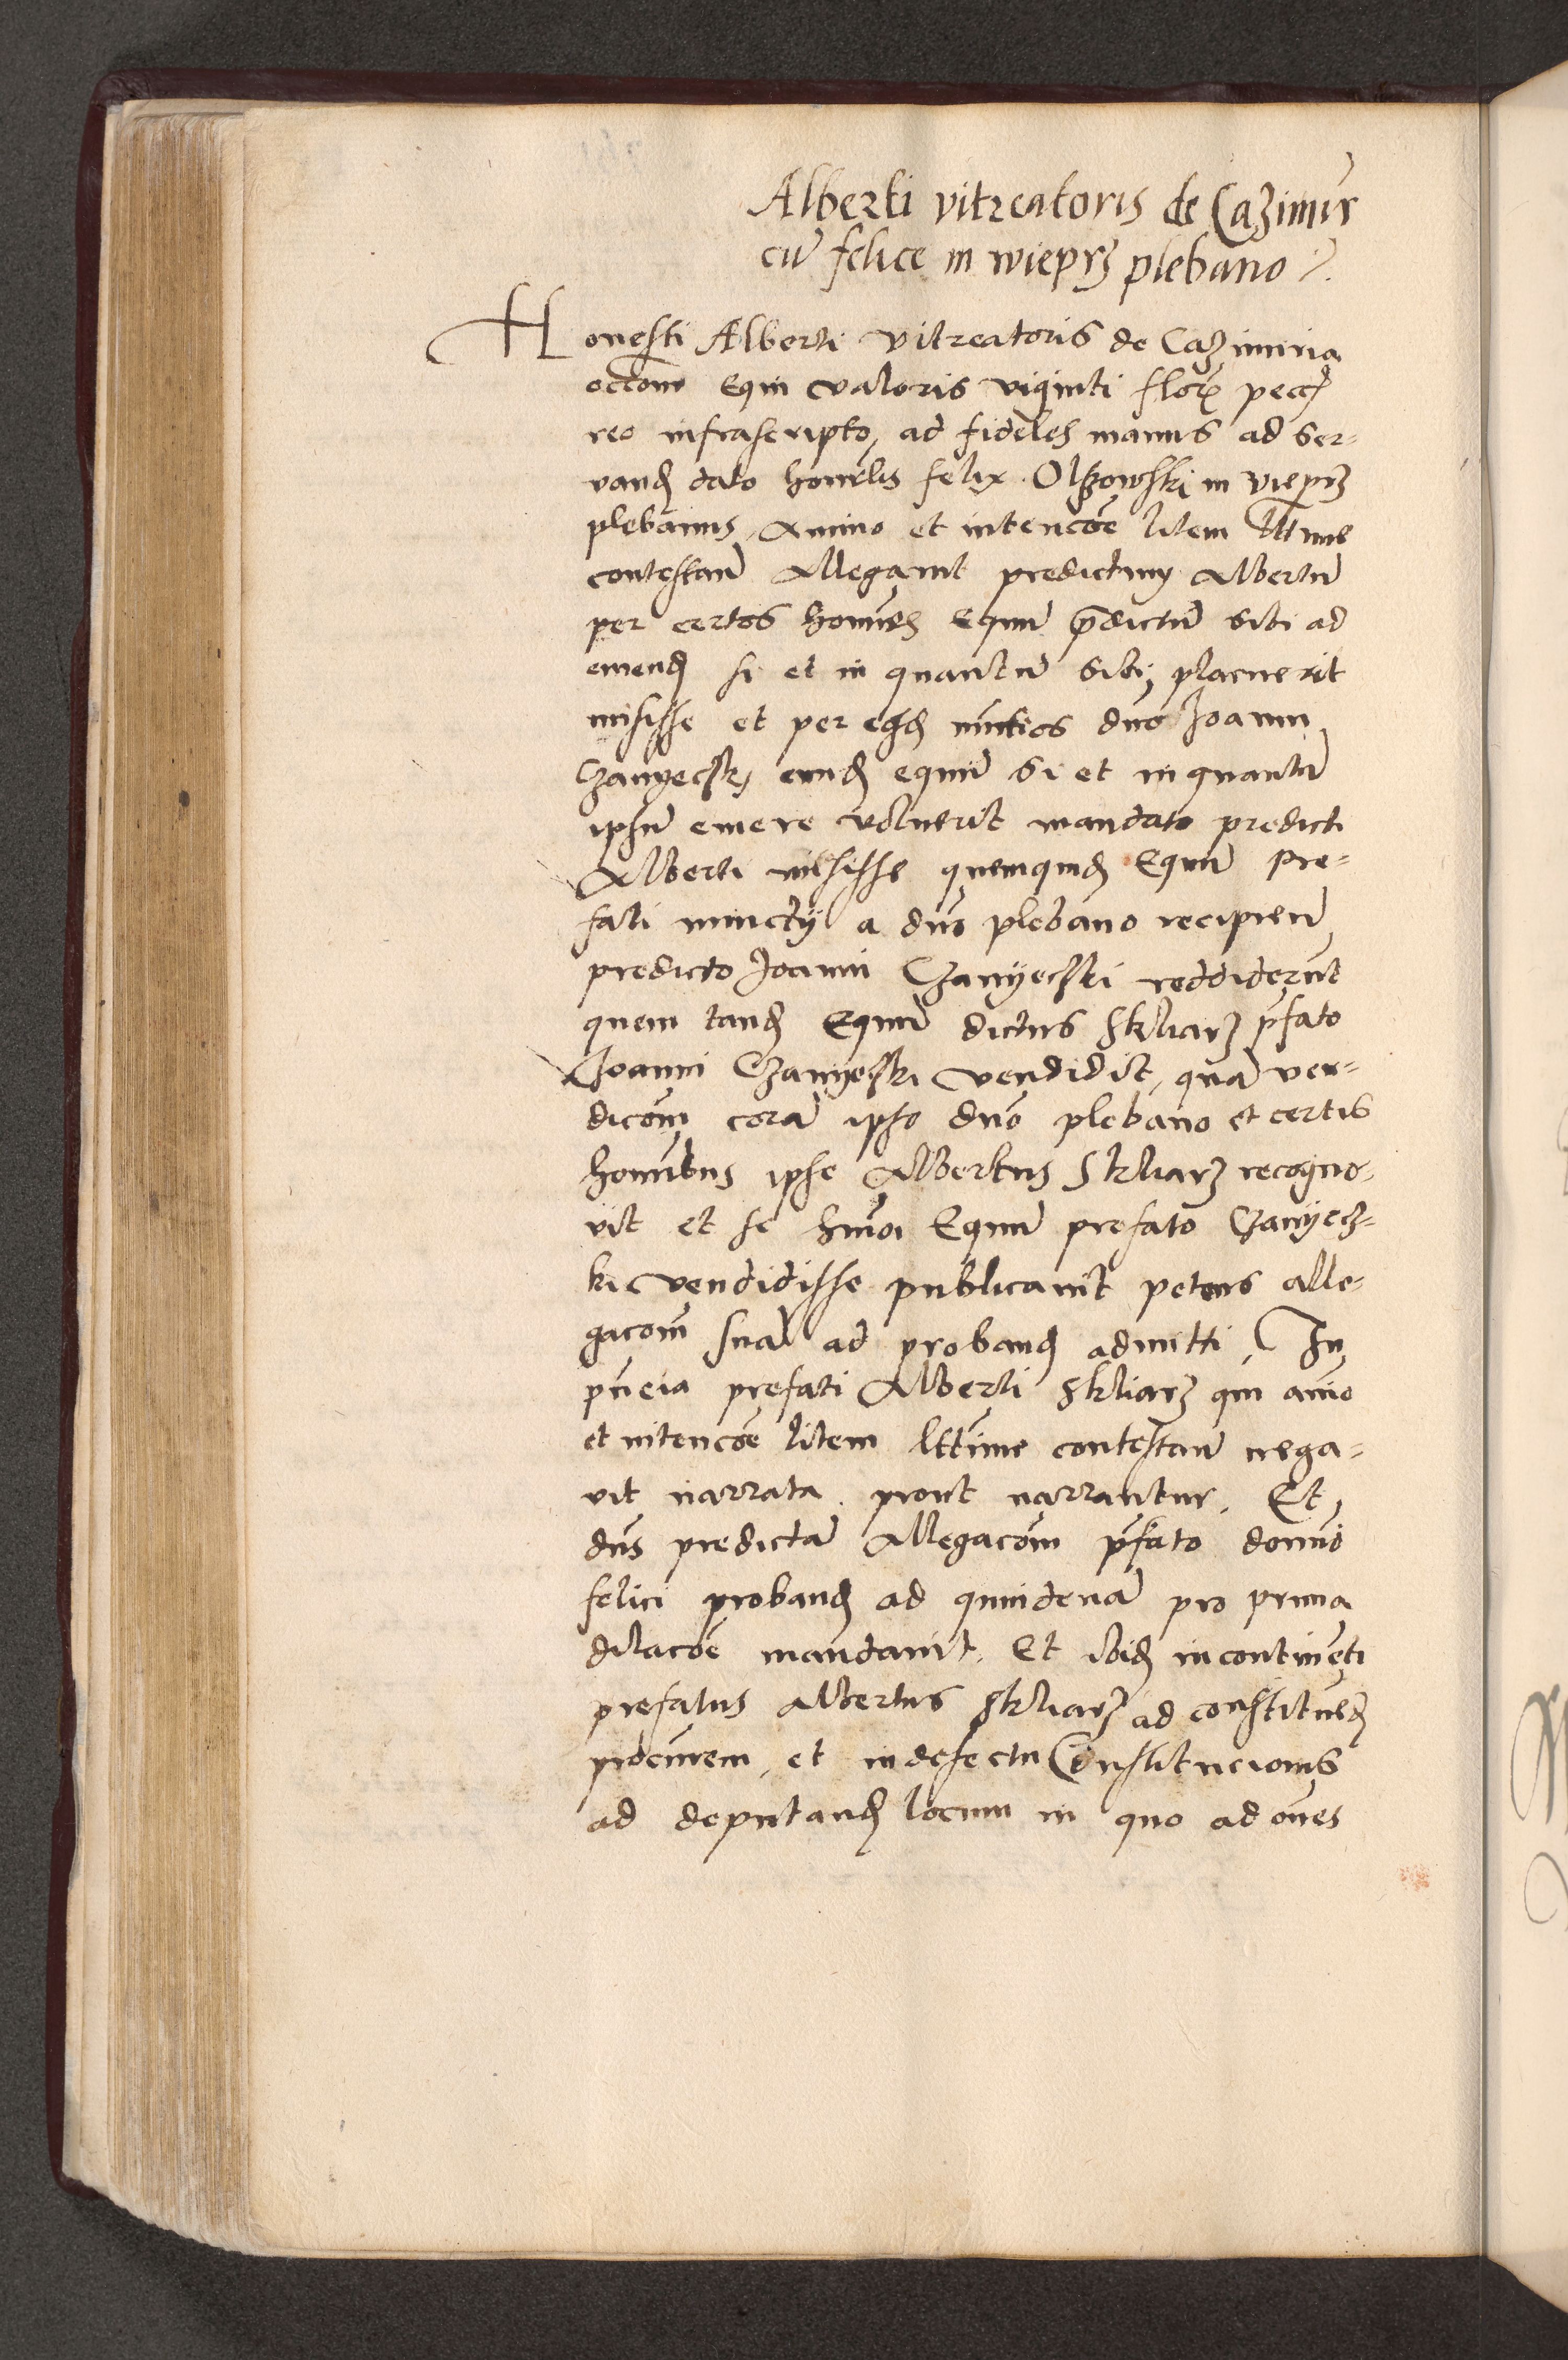 Alberti vitreatoris de Cazimir̃
cũ felice in wieprz plebano
Honesti Alberti vitreatoris de Cazimiria
accõne Equi valoris viginti flor̃ pecc̃
reo infrascripto, ad fideles manus ad ser-
vand̃ dato honrl̃is felix Olszowski in Vieprz
plebanus, Animo et intencõe litem lttime
contestand̃ Allegavit predictum Albertũ
per certos homĩes Equũ p̃dictũ sibi ad
emend̃ si et in quantũ sibi placuerit
misisse et per eosd̃ nũtios dño Joanni
Czanyeczk̃ eund̃ equũ si et in quantũ
ipsũ emere voluerit mandato predicti
Alberti misisse quemquid̃ Equũ pre-
fati nunctÿ a dño plebano recipien̄
predicto Joanni Czanÿeczki reddiderũt
quem tand̃ Equũ dictus Skliarz p̃fato
Joanni Czanyeczki vendidit, quã ven-
dicõm corã ipso dño plebano et certis
homĩbus ipse Albertus Skliarz recogno-
vit et se hmõi Equũ prefato Czanyecz-
ki vendidisse publicavit petens alle-
gacõm suã ad proband̃ admitti, In
pñcia prefati Alberti Skliarz qui aĩo
et intencõe litem lttime contestand̃ nega-
vit narrata prout narrantur, Et
dñs predictã Allegacõm p̃fato domĩo
felici proband̃ ad quindenã pro prima
dilacõe mandavit, Et ibid̃ in continẽti
prefatus Albertus Skliarz ad constituẽd̃
procũrem, et in defectu Constitucionis
ad deputand̃ locum in quo ad oẽs